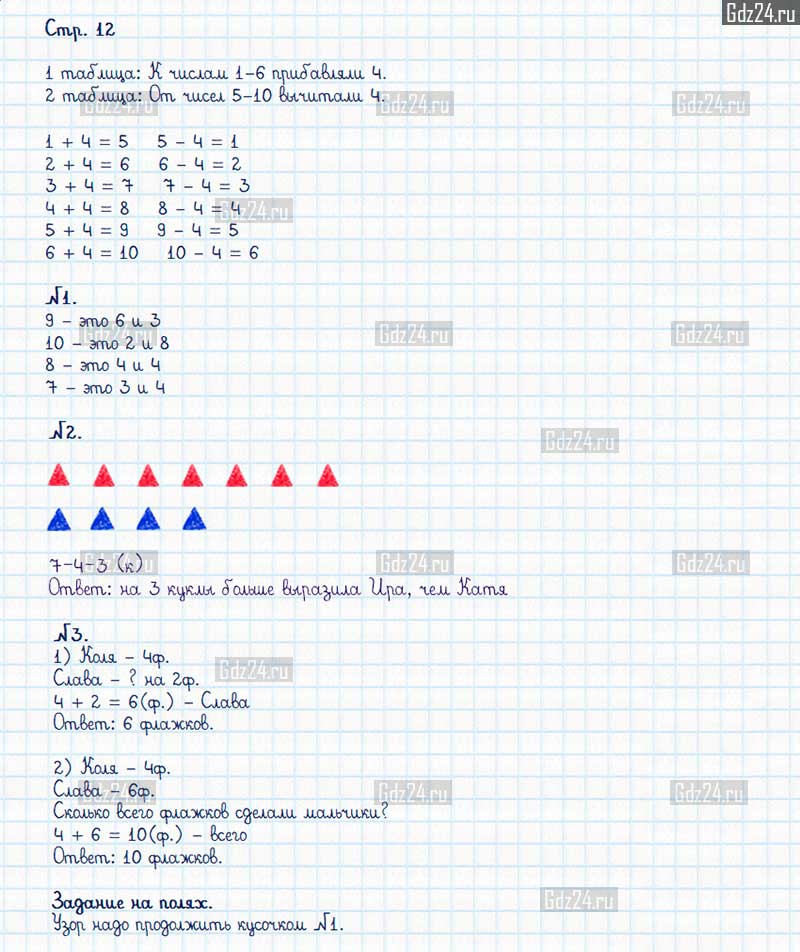 Gdz24.ru
Стр. 12
1 таблица: К числам 1-6 прибавляли 4.
2 таблица: От чисел 5-10 вычитали 4.
Gdz24.ru Gdz24.ru Gdz24.ru
1 + 4 = 5 5 - 4 = 1
2 + 4 = 6 6 - 4 = 2
3 + 4 = 7 7 - 4 = 3
4 + 4 = 8 8 - 4 = 4
Gdz24.ru
5 + 4 = 9 9 - 4 = 5
6 + 4 = 10 10 - 4 = 6
№1.
9 - это 6 и 3
Gdz24.ru Gdz24.ru Gdz24.ru
10 - это 2 и 8
8 - это 4 и 4
7 - это 3 и 4
№2.
Gdz24.ru
7-4-3 (к)
Gdz24.ru Gdz24.ru Gdz24.ru
Ответ: на 3 куклы больше выразила Ира, чем Катя
№3.
1) Коля - 4ф.
Gdz24.ru
Слава - ? на 2ф.
4 + 2 = 6(ф.) - Слава
Ответ: 6 флажков.
2) Коля - 4ф.
Слава - 6ф.
Gdz24.ru Gdz24.ru Gdz24.ru
Сколько всего флажков сделали мальчики?
4 + 6 = 10(ф.) - всего
Ответ: 10 флажков.
Задание на полях.
Gdz24.ru
Узор надо продолжить кусочком №1.